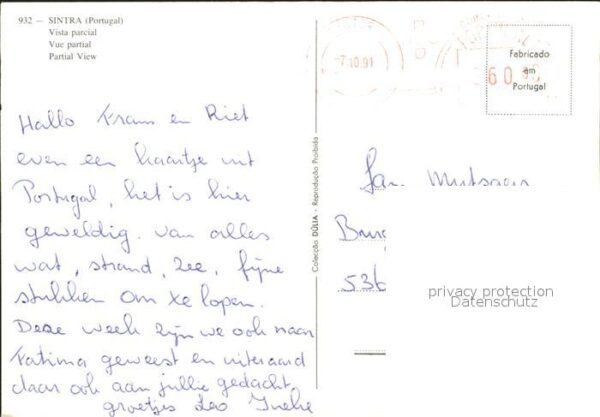 932 – SINTRA (Portugal)
Vista parcial
Vue partial
Partial View
Hallo Frans en Riet
even een kaartje uit
Portugal, het is hier
geweldig. van alles
wat, strand, zee, fijne
stukken om te lopen.
Deze week zijn we ook naar
Fatima geweest en uiteraard
daar ook aan jullie gedacht
groetjes Leo Ineke
Colecção DÚLIA - Reprodução Proibida
-7.10.91
60
Fabricado
em
Portugal
Fam. Mutsaers
536
privacy protection
Datenschutz